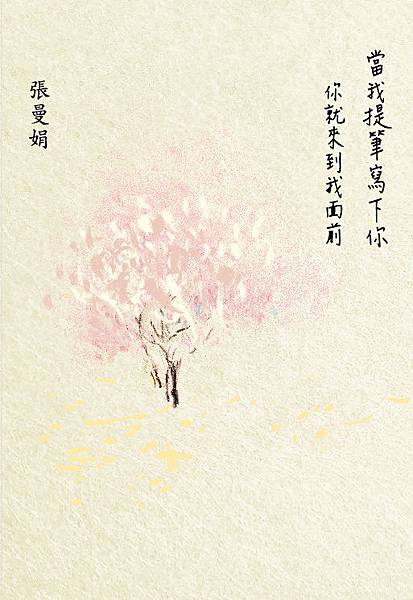 當我提筆寫下你
你就來到我面前
張曼娟